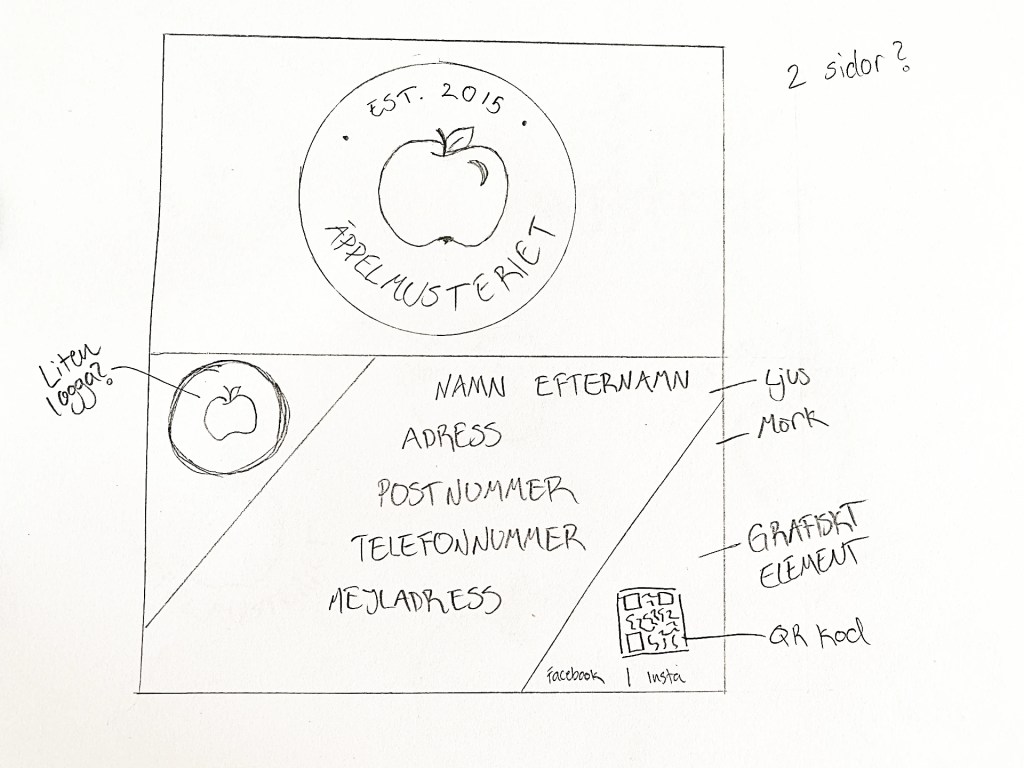 2 sidor?
EST. 2015
ÄPPELMUSTERIET
Liten
logga?
NAMN EFTERNAMN
Ljus
Mörk
ADRESS
POSTNUMMER
TELEFONNUMMER
MEJLADRESS
GRAFISKT
ELEMENT
QR kod
Facebook | Insta